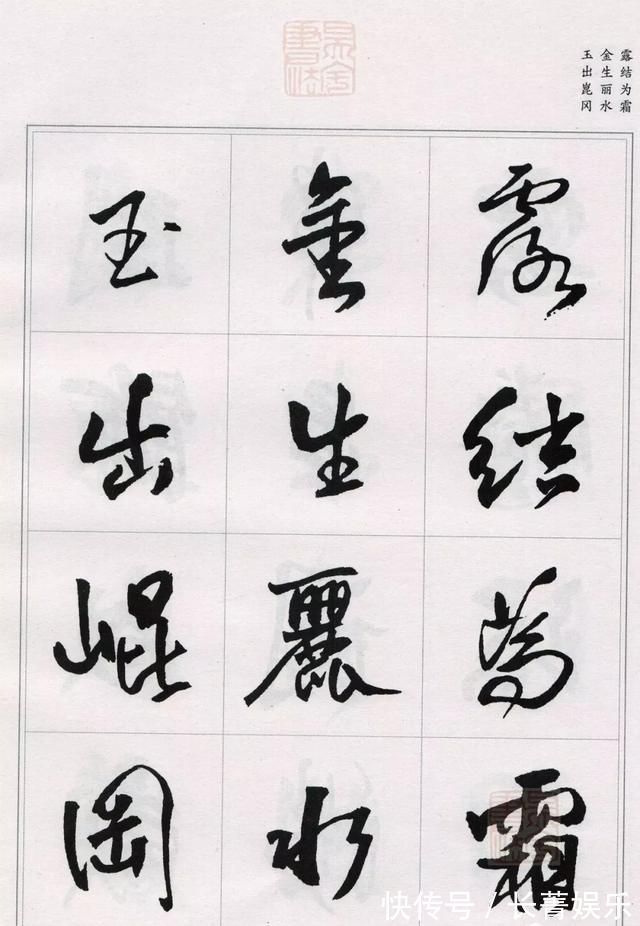 露结为霜
金生丽水
玉出崑冈
露結為霜
金生麗水
玉出崐岡
快传号/长菁娱乐